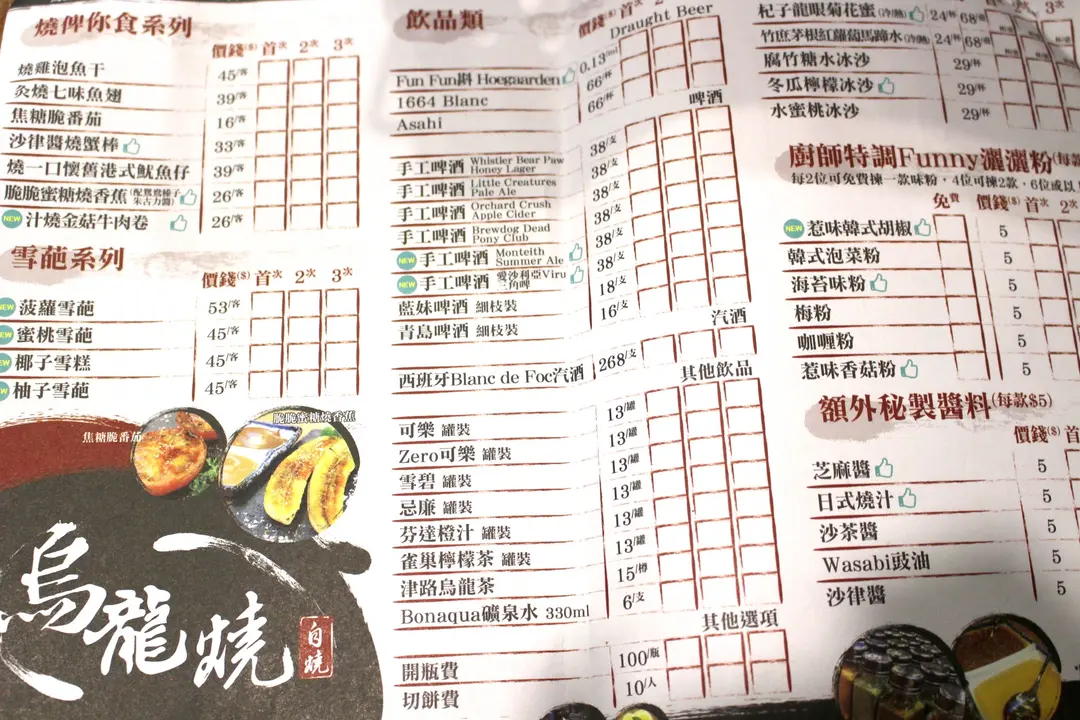 燒俾你食系列
價錢($) 首次 2次 3次
燒雞泡魚干 45/客
灸燒七味魚翅 39/客
焦糖脆番茄 16/客
沙律醬燒蟹棒 33/客
燒一口懷舊港式魷魚仔 39/客
脆脆蜜糖燒香蕉 (配鴛鴦榛子朱古力醬) 26/客
NEW 汁燒金菇牛肉卷 26/客
雪葩系列
價錢($) 首次 2次 3次
NEW 菠蘿雪葩 53/客
NEW 蜜桃雪葩 45/客
NEW 椰子雪糕 45/客
NEW 柚子雪葩 45/客
焦糖脆番茄
脆脆蜜糖燒香蕉
烏龍燒
自燒
飲品類
價錢($) 首次 2次
Draught Beer
Fun Fun斟 Hoegaarden 0.13/ml
1664 Blanc 66/杯
Asahi 66/杯
啤酒
手工啤酒 Whistler Bear Paw Honey Lager 38/支
手工啤酒 Little Creatures Pale Ale 38/支
手工啤酒 Orchard Crush Apple Cider 38/支
手工啤酒 Brewdog Dead Pony Club 38/支
NEW 手工啤酒 Monteith Summer Ale 38/支
NEW 手工啤酒 愛沙利亞Viru 三角啤 38/支
藍妹啤酒 細枝裝 18/支
青島啤酒 細枝裝 16/支
汽酒
西班牙Blanc de Foc汽酒 268/支
其他飲品
可樂 罐裝 13/罐
Zero可樂 罐裝 13/罐
雪碧 罐裝 13/罐
忌廉 罐裝 13/罐
芬達橙汁 罐裝 13/罐
雀巢檸檬茶 罐裝 13/罐
津路烏龍茶 15/樽
Bonaqua礦泉水 330ml 6/支
其他選項
開瓶費 100/瓶
切餅費 10/人
杞子龍眼菊花蜜 (冷/熱) 24/杯 68/壺
竹庶茅根紅蘿蔔馬蹄水 (冷/熱) 24/杯 68/壺
腐竹糖水冰沙 29/杯
冬瓜檸檬冰沙 29/杯
水蜜桃冰沙 29/杯
廚師特調Funny灑灑粉
每2位可免費揀一款味粉，4位可揀2款，6位或以
免費 價錢($) 首次 2次
NEW 惹味韓式胡椒 5
韓式泡菜粉 5
海苔味粉 5
梅粉 5
咖喱粉 5
惹味香菇粉 5
額外秘製醬料(每款$5)
價錢($) 首
芝麻醬 5
日式燒汁 5
沙茶醬 5
Wasabi豉油 5
沙律醬 5